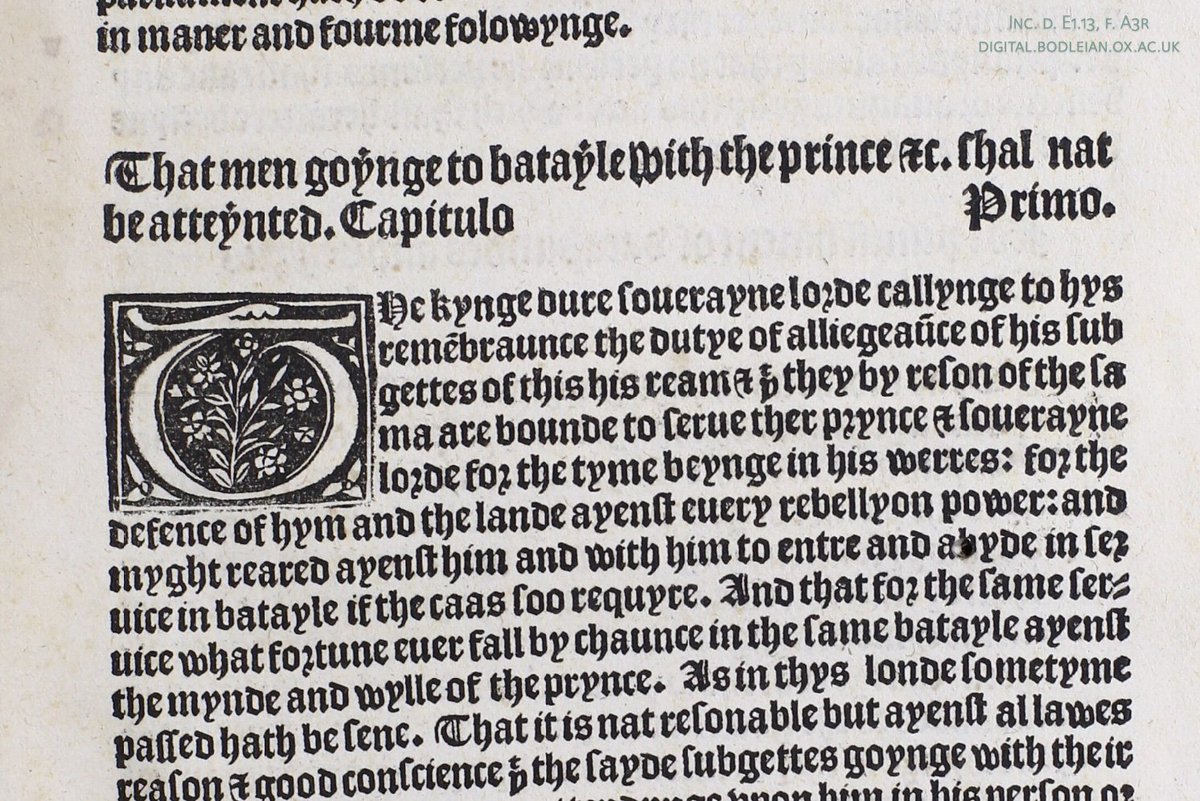 Inc. d. E1.13, f. A3r
digital.bodleian.ox.ac.uk
in maner and fourme folowynge.
That men goẏnge to bataẏle with the prince ⁊c. ſhal nat
be atteẏnted. Capitulo Primo.
THe kynge oure ſouerayne loꝛde callynge to hys
remēbraunce the dutye of alliegeaūce of his ſub
gettes of this his ream ⁊ þͭ they by reſon of the ſa
ma are bounde to ſerue ther pꝛynce ⁊ ſouerayne
loꝛde foꝛ the tyme beynge in his werres: foꝛ the
defence of hym and the lande ayenſt euery rebellyon power: and
myght reared ayenſt him and with him to entre and abyde in ſeꝛ
uice in batayle if the caas ſoo requyre. And that foꝛ the ſame ſer⸗
uice what foꝛtune euer fall by chaunce in the ſame batayle ayenſt
the mynde and wylle of the prynce. As in thys londe ſometyme
paſſed hath be ſene. That it is nat reſonable but ayenſt al lawes
reaſon ⁊ good conſcience þͭ the ſayde ſubgettes goynge with their
vpon him in his perſon oꝛ